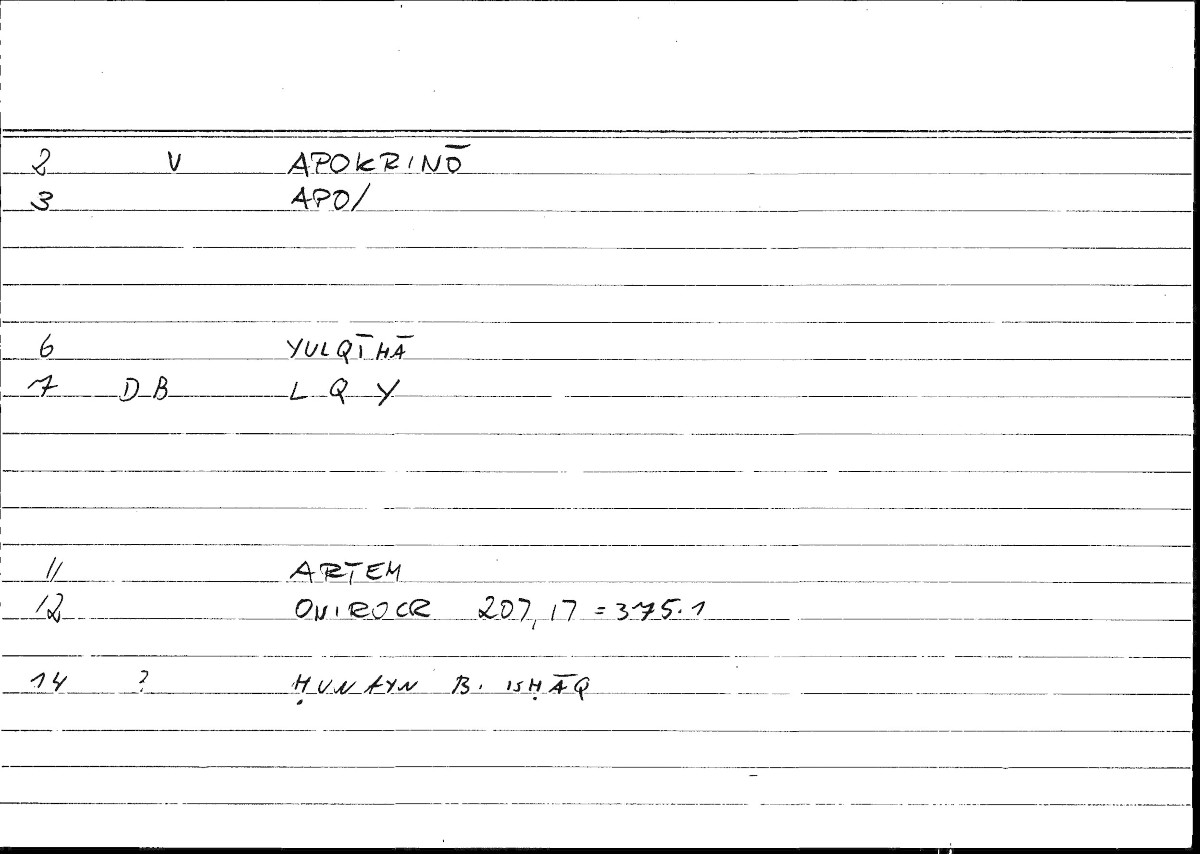 2 V APOKRINŌ
3 APO/
6 YULQĪHĀ
7 DB L Q Y
11 ARTEM
12 ONIROCR 207,17 = 375.1
14 ? ḤUNAYN B. ISḤĀQ